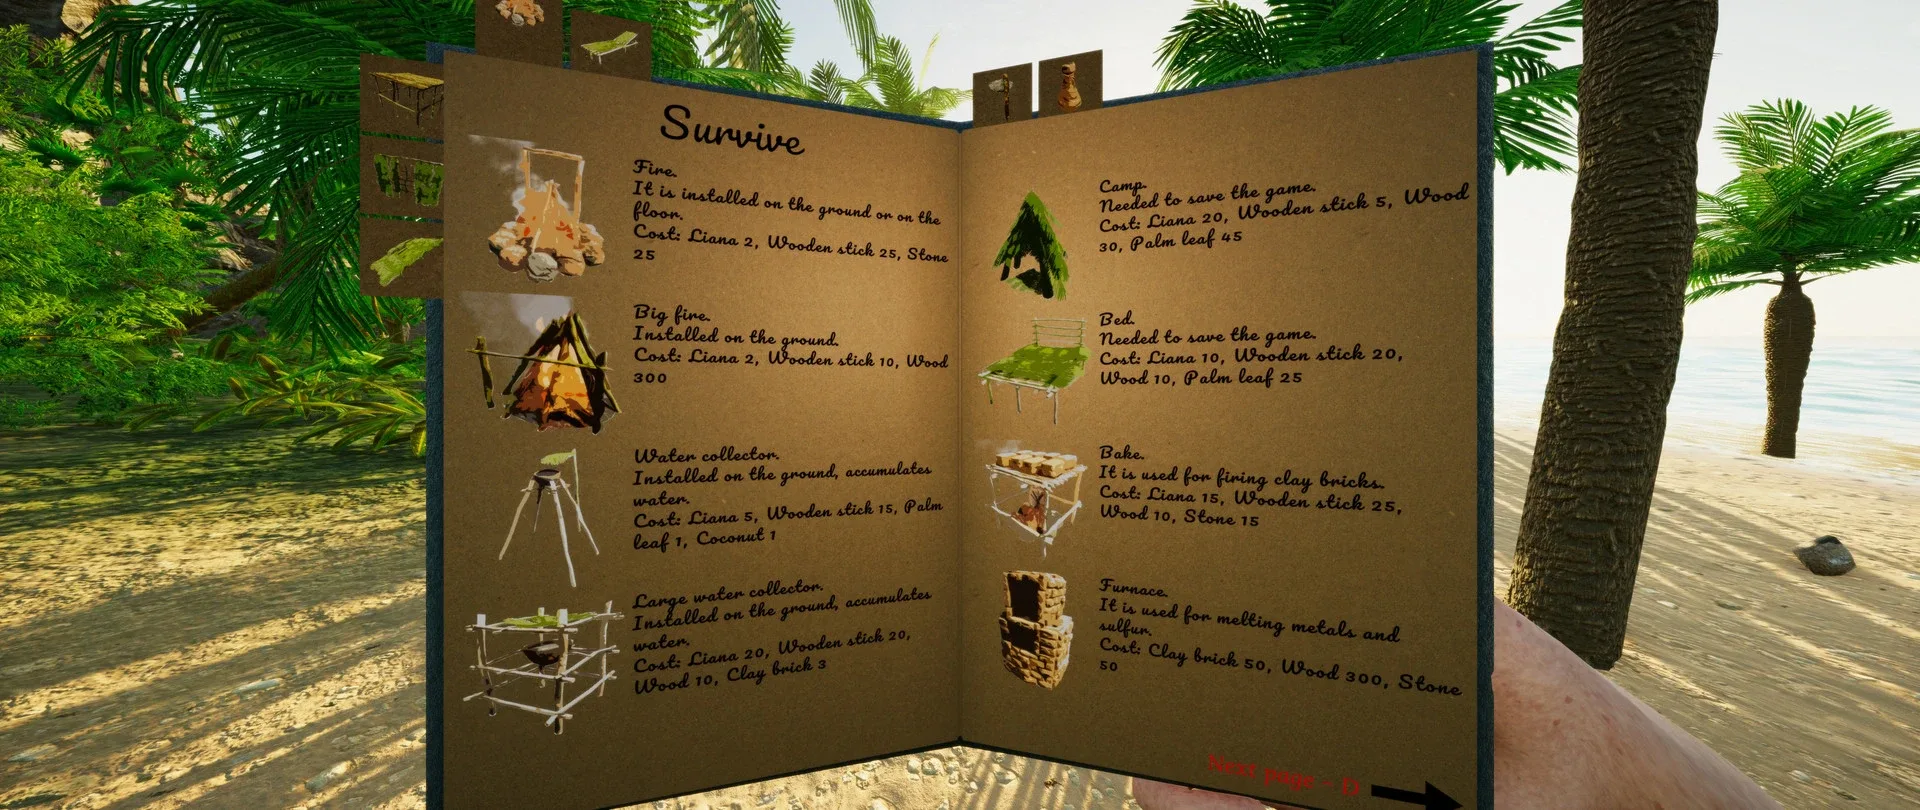 Survive
Fire.
It is installed on the ground or on the
floor.
Cost: Liana 2, Wooden stick 25, Stone
25
Big fire.
Installed on the ground.
Cost: Liana 2, Wooden stick 10, Wood
300
Water collector.
Installed on the ground, accumulates
water.
Cost: Liana 5, Wooden stick 15, Palm
leaf 1, Coconut 1
Large water collector.
Installed on the ground, accumulates
water.
Cost: Liana 20, Wooden stick 20,
Wood 10, Clay brick 3
Camp.
Needed to save the game.
Cost: Liana 20, Wooden stick 5, Wood
30, Palm leaf 45
Bed.
Needed to save the game.
Cost: Liana 10, Wooden stick 20,
Wood 10, Palm leaf 25
Bake.
It is used for firing clay bricks.
Cost: Liana 15, Wooden stick 25,
Wood 10, Stone 15
Furnace.
It is used for melting metals and
sulfur.
Cost: Clay brick 50, Wood 300, Stone
50
Next page - D